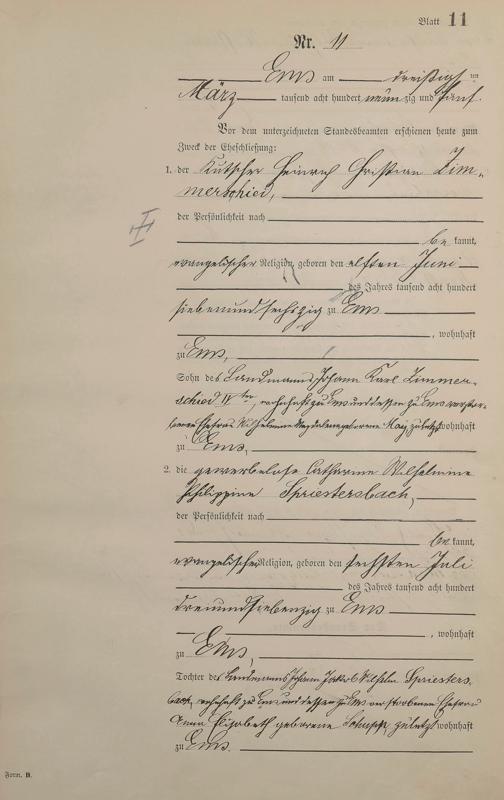 Blatt 11
Nr. 11
Ems am dreißigsten
März tausend acht hundert neunzig und fünf.
Vor dem unterzeichneten Standesbeamten erschienen heute zum
Zweck der Eheschließung:
1. der Kutscher Heinrich Christian Zim-
merschied,
der Persönlichkeit nach
be kannt,
evangelischer Religion, geboren den elften Juni
des Jahres tausend acht hundert
siebenundsechszig zu Ems
, wohnhaft
zu Ems,
Sohn des Landmanns Johann Karl Zimmer-
schied IV ten, wohnhaft zu Ems und dessen zu Ems verstor-
benen Ehefrau Wilhelmine Magdalene geborene May, zuletzt wohnhaft
zu Ems,
2. die gewerbelose Catharine Wilhelmine
Philippine Spriestersbach,
der Persönlichkeit nach
be kannt,
evangelischer Religion, geboren den sechsten Juli
des Jahres tausend acht hundert
dreiundsiebenzig zu Ems
, wohnhaft
zu Ems,
Tochter des Landmanns Johann Jakob Wilhelm Spriesters-
bach, wohnhaft zu Ems und dessen zu Ems verstorbenen Ehefrau
Anna Elisabeth geborene Schupp, zuletzt wohnhaft
zu Ems.
Form. B.